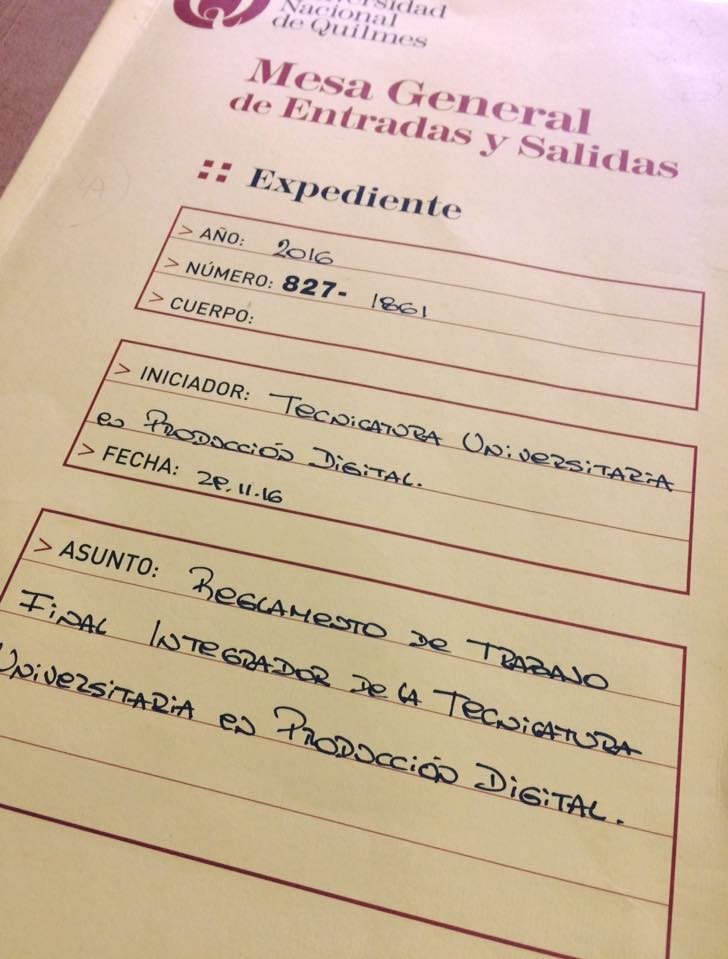 Universidad
Nacional
de Quilmes
Mesa General
de Entradas y Salidas
Expediente
> AÑO: 2016
> NÚMERO: 827- 1861
> CUERPO:
> INICIADOR: TECNICATURA UNIVERSITARIA
EN PRODUCCIÓN DIGITAL.
> FECHA: 28.11.16
> ASUNTO: REGLAMENTO DE TRABAJO
FINAL INTEGRADOR DE LA TECNICATURA
UNIVERSITARIA EN PRODUCCIÓN DIGITAL.